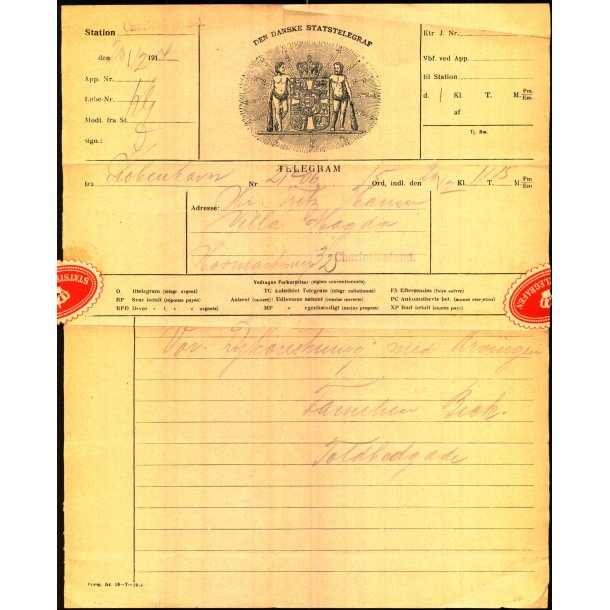 Station Charlottenlund.
den 20/2 191
App. Nr.
Løbe-Nr.
Modt. fra St.
sign.:
DEN DANSKE STATSTELEGRAF
Ktr. J. Nr.
Vbf. ved App.
til Station
d. / Kl. T. M. Fm./Em.
af
Tj. Bm.
TELEGRAM
fra København Nr. 15 Ord, indl. den Kl. T. M. Fm./Em.
Adresse: Hr. Fritz Hansen
Villa Magda
32 Charlottenlund.
Vedtagne Forkortelser (signes conventionnels).
D Iltelegram (télégr. urgent)
RP Svar betalt (réponse payée)
RPD Ilsvar „ ( „ „ urgente)
TC Anbefalet Telegram (télégr. collationné)
Aabent (ouvert): Udleveres aabent (remise ouverte)
MP „ egenhændigt (mains propres)
FS Eftersendes (faire suivre)
PC Ankomstbevis bet. (accusé réception)
XP Bud betalt (exprès payé)
STATST
TELEGRAFEN
Vor Lykønskning med
Familien Beck.
Toldbodgade
Form. Nr.